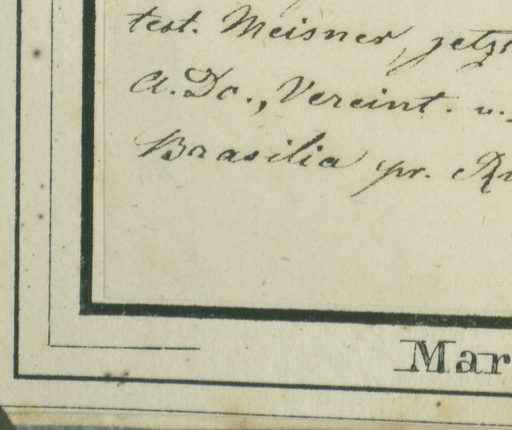 test. Meisner, jetzt
A. Dc., Vereint. u.
Brasilia pr. R
Mar